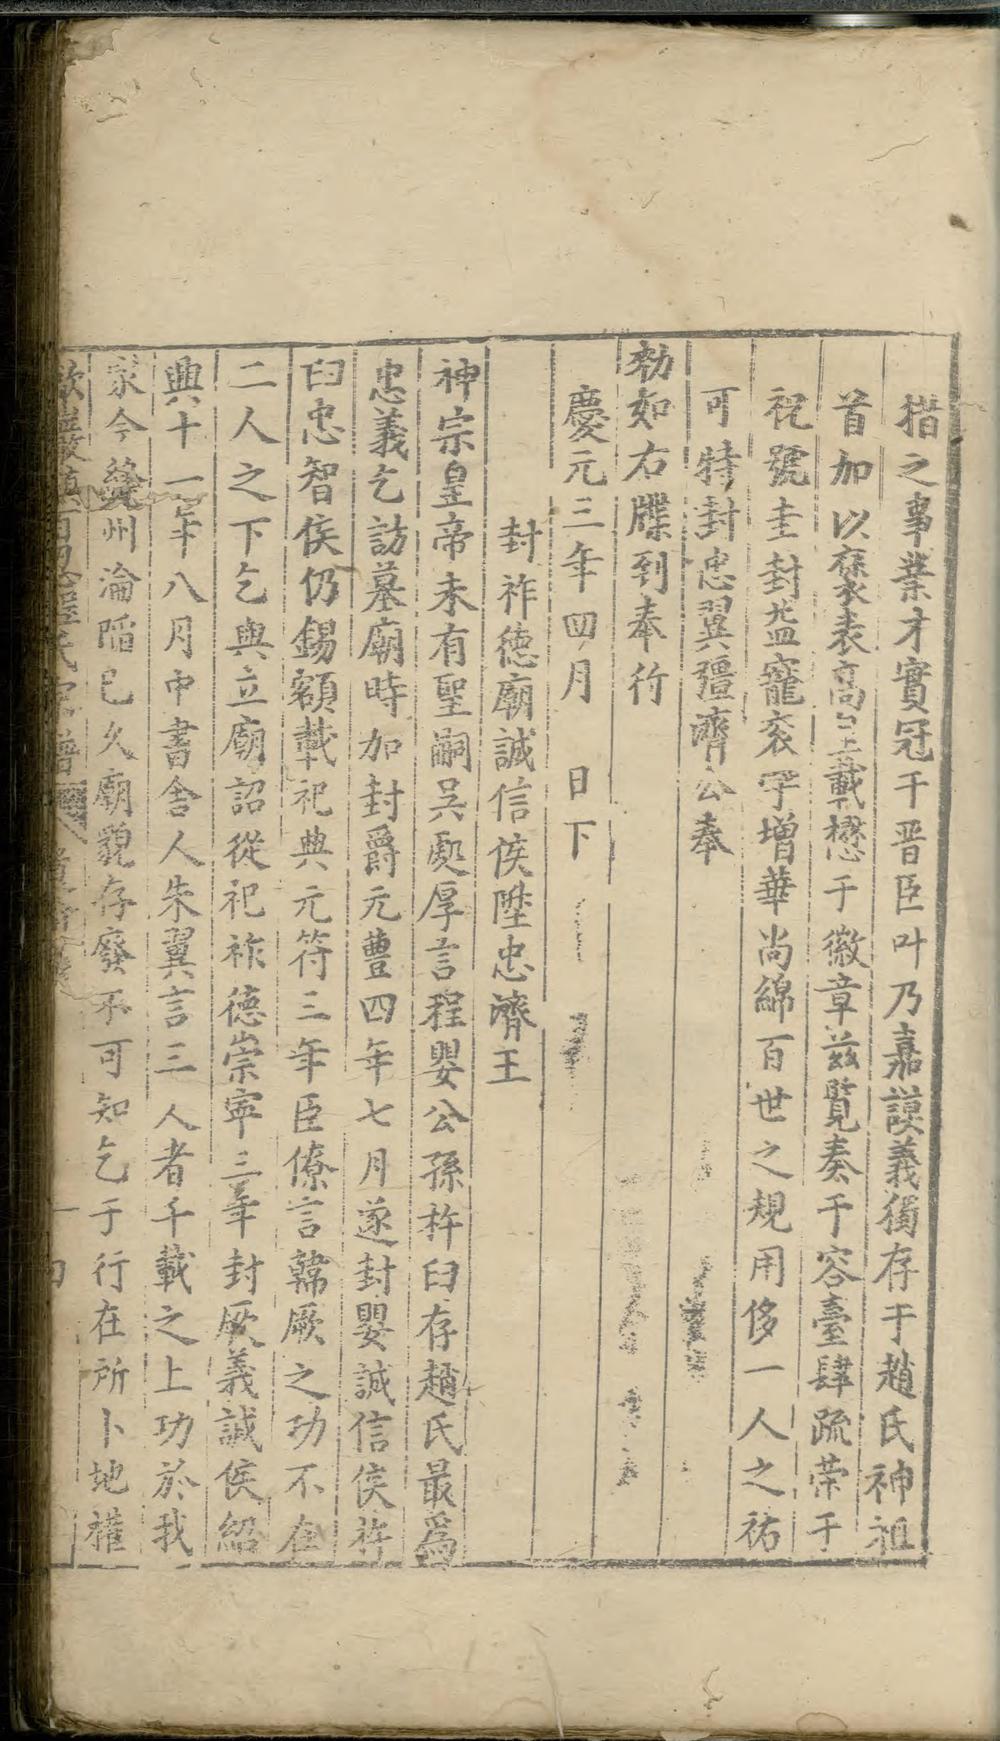 措之事業才實冠于晋臣叶乃嘉謨義獨存于趙氏神祖
首加以褒表高皇載懋于徽章兹覽奏于容臺肆疏荣于
祝號圭封益寵衮字增華尚綿百世之規用侈一人之祐
可特封忠翼彊濟公奉
勑如右牒到奉行
慶元三年四月 日下
封祚德廟誠信侯陞忠濟王
神宗皇帝未有聖嗣吴處厚言程嬰公孫杵臼存趙氏最爲
忠義乞訪墓廟時加封爵元豊四年七月遂封嬰誠信侯杵
臼忠智侯仍錫額載祀典元符三年臣僚言韓厥之功不在
二人之下乞與立廟詔從祀祚德崇寕三年封厥義誠侯紹
興十一年八月中書舍人朱翼言三人者千載之上功於我
家今絳州淪陷已久廟貌存廢不可知乞于行在所卜地權